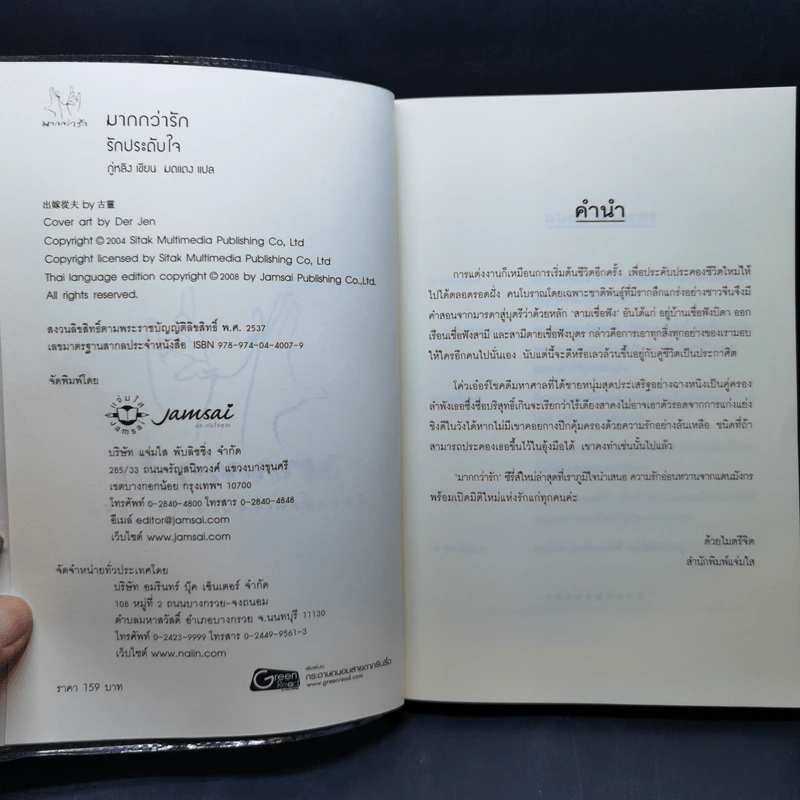 มากกว่ารัก
มากกว่ารัก
รักประดับใจ
กู่หลิง เขียน มดแดง แปล
出嫁從夫 by 古靈
Cover art by Der Jen
Copyright © 2004 Sitak Multimedia Publishing Co, Ltd
Copyright licensed by Sitak Multimedia Publishing Co, Ltd
Thai language edition copyright © 2008 by Jamsai Publishing Co.,Ltd.
All rights reserved.
สงวนลิขสิทธิ์ตามพระราชบัญญัติลิขสิทธิ์ พ.ศ. 2537
เลขมาตรฐานสากลประจำหนังสือ ISBN 978-974-04-4007-9
จัดพิมพ์โดย
แจ่มใส
Jamsai
Jamsai
บริษัท แจ่มใส พับลิชชิ่ง จำกัด
285/33 ถนนจรัญสนิทวงศ์ แขวงบางขุนศรี
เขตบางกอกน้อย กรุงเทพฯ 10700
โทรศัพท์ 0-2840-4800 โทรสาร 0-2840-4848
อีเมล์ editor@jamsai.com
เว็บไซต์ www.jamsai.com
จัดจำหน่ายทั่วประเทศโดย
บริษัท อมรินทร์ บุ๊ค เซ็นเตอร์ จำกัด
108 หมู่ที่ 2 ถนนบางกรวย-จงถนอม
ตำบลมหาสวัสดิ์ อำเภอบางกรวย จ.นนทบุรี 11130
โทรศัพท์ 0-2423-9999 โทรสาร 0-2449-9561-3
เว็บไซต์ www.naiin.com
ราคา 159 บาท
Green Read
พิมพ์บน
กระดาษถนอมสายตากรีนรี้ด
www.greenread.com
คำนำ
การแต่งงานก็เหมือนการเริ่มต้นชีวิตอีกครั้ง เพื่อประคับประคองชีวิตใหม่ให้
ไปได้ตลอดรอดฝั่ง คนโบราณโดยเฉพาะชาติพันธุ์ที่มีรากลึกแกร่งอย่างชาวจีนจึงมี
คำสอนจากมารดาสู่บุตรีว่าด้วยหลัก 'สามเชื่อฟัง' อันได้แก่ อยู่บ้านเชื่อฟังบิดา ออก
เรือนเชื่อฟังสามี และสามีตายเชื่อฟังบุตร กล่าวคือการเอาทุกสิ่งทุกอย่างของเรามอบ
ให้ใครอีกคนไปนั่นเอง นับแต่นี้จะดีหรือเลวล้วนขึ้นอยู่กับคู่ชีวิตเป็นประกาศิต
โค่วเอ๋อร์โชคดีมหาศาลที่ได้ชายหนุ่มสุดประเสริฐอย่างฉางหนิงเป็นคู่ครอง
ลำพังเธอซึ่งซื่อบริสุทธิ์เกินจะเรียกว่าไร้เดียงสาคงไม่อาจเอาตัวรอดจากการแก่งแย่ง
ชิงดีในวังได้หากไม่มีเขาคอยกางปีกคุ้มครองด้วยความรักอย่างล้นเหลือ ชนิดที่ถ้า
สามารถประคองเธอขึ้นไว้ในอุ้งมือได้ เขาคงทำเช่นนั้นไปแล้ว
'มากกว่ารัก' ซีรี่ส์ใหม่ล่าสุดที่เราภูมิใจนำเสนอ ความรักอ่อนหวานจากแดนมังกร
พร้อมเปิดมิติใหม่แห่งรักแก่ทุกคนค่ะ
ด้วยไมตรีจิต
สำนักพิมพ์แจ่มใส